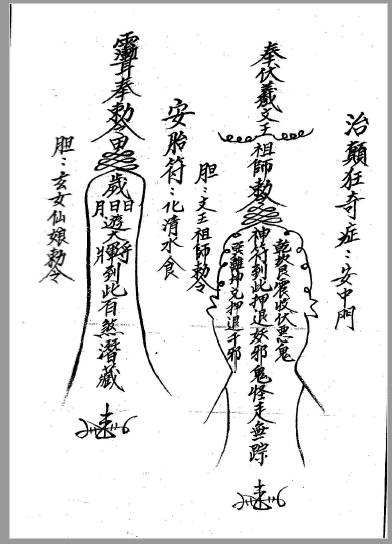 治顛狂奇症：安中門
奉伏羲文王祖師勅令
乾坎艮震收伏惡鬼
神符到此押退妖邪鬼怪走無踪
巽離坤兌押退千邪
胆：文王祖師勅令
安胎符：化清水食
奉勅令
歲
日月
日遊大將
到此百煞潛藏
胆：玄女仙娘勅令